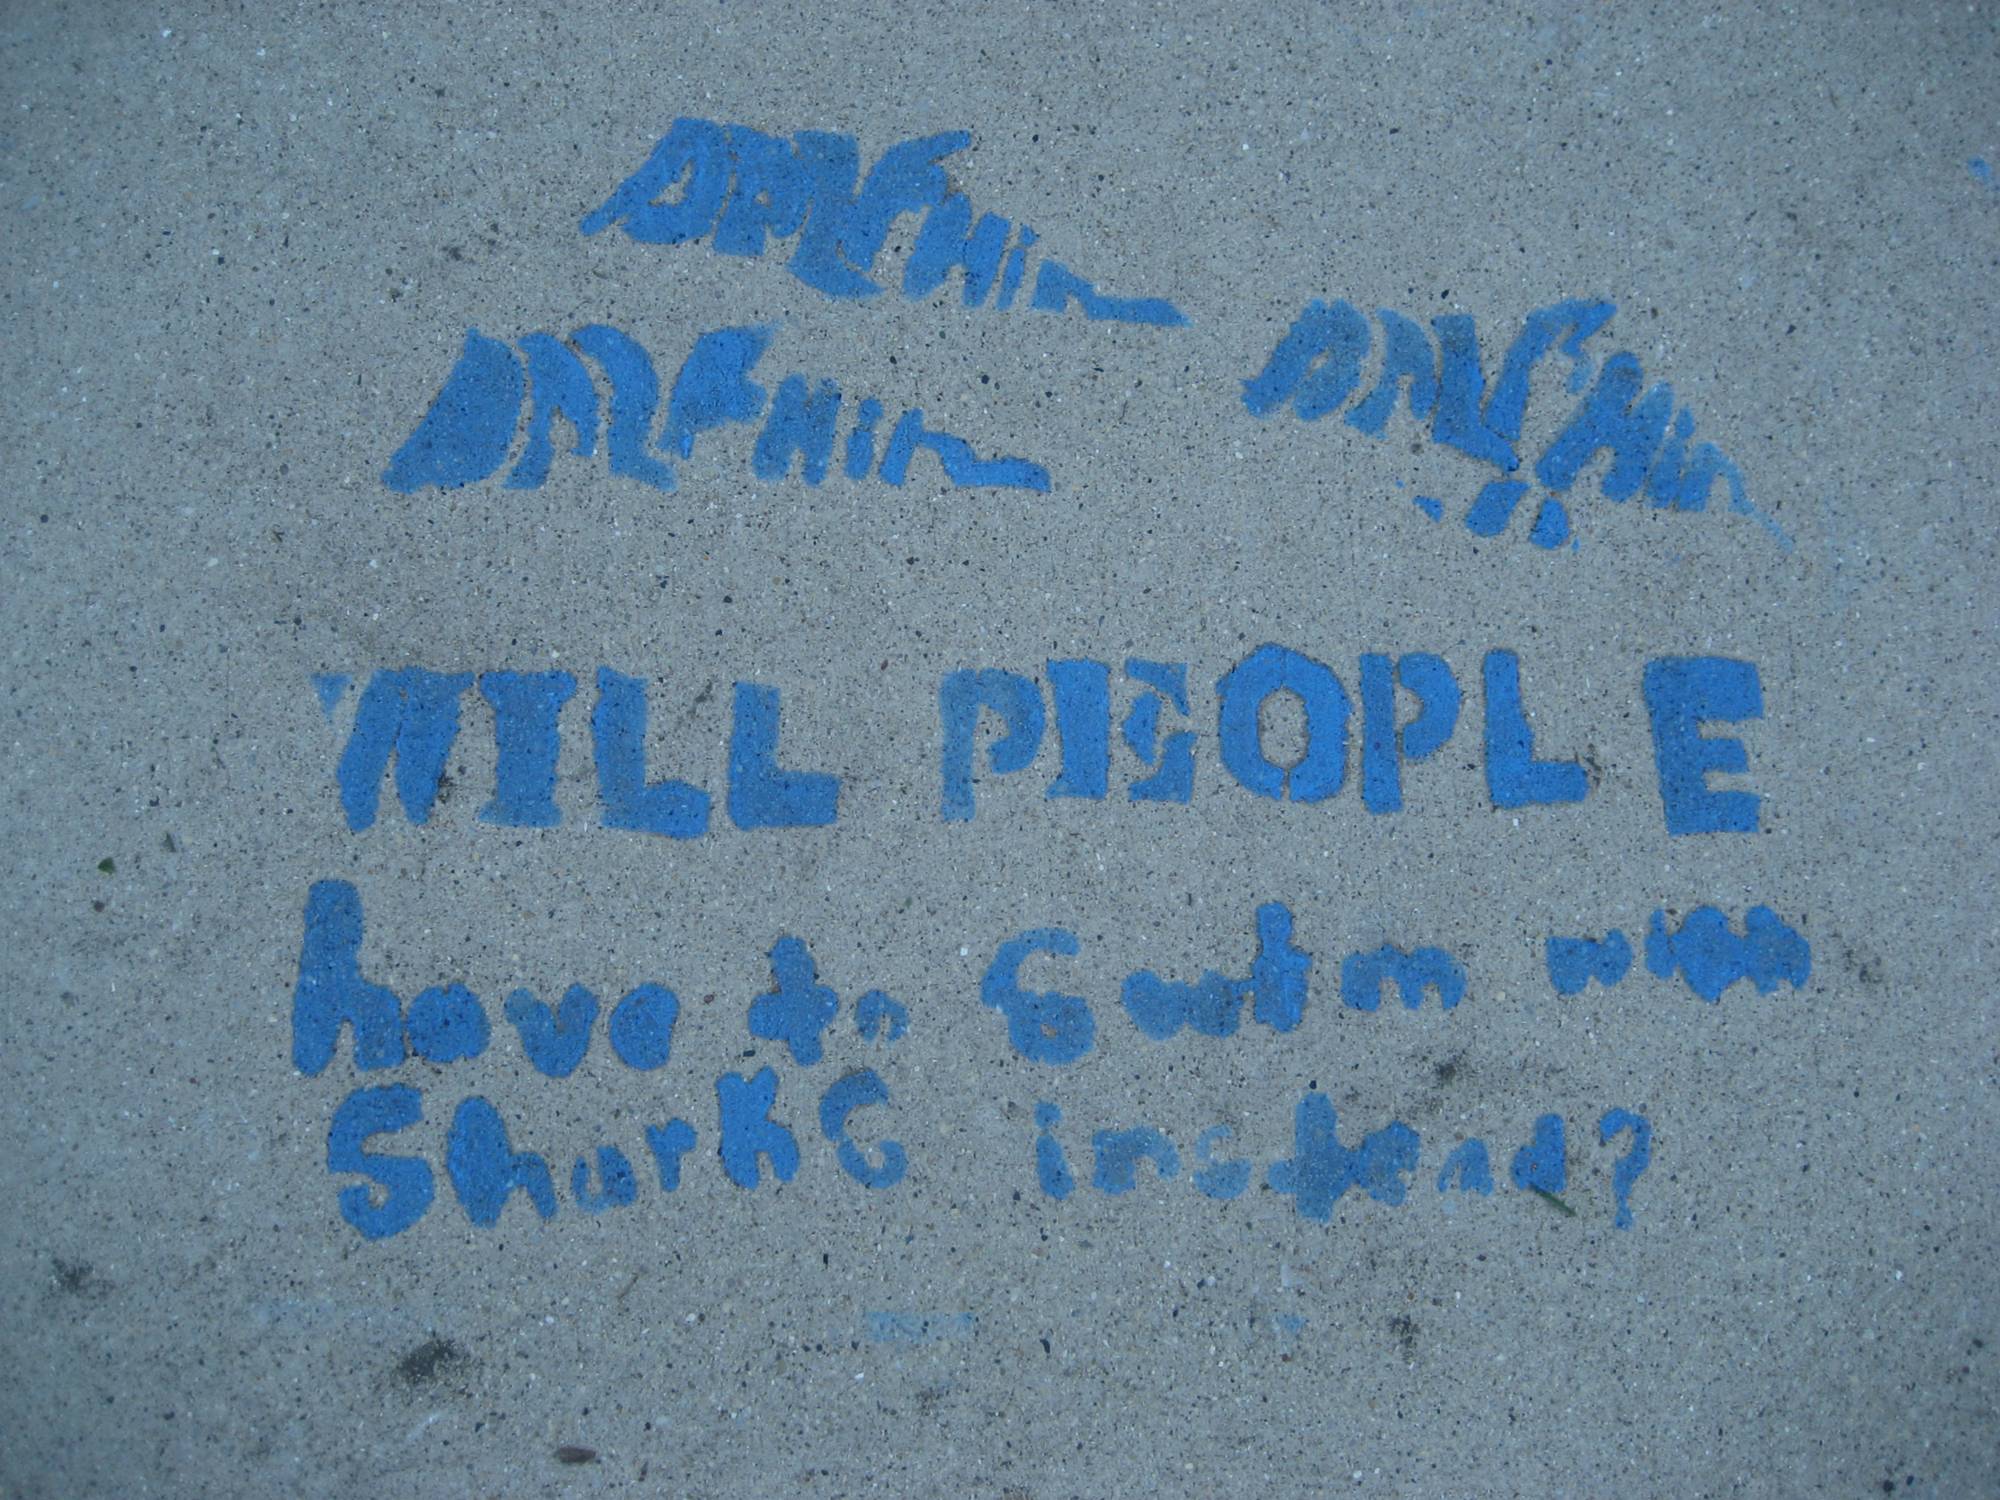 DALFHin
DALFHin
DALFHin
WILL PEOPLE
have to swim with
Sharks instead?